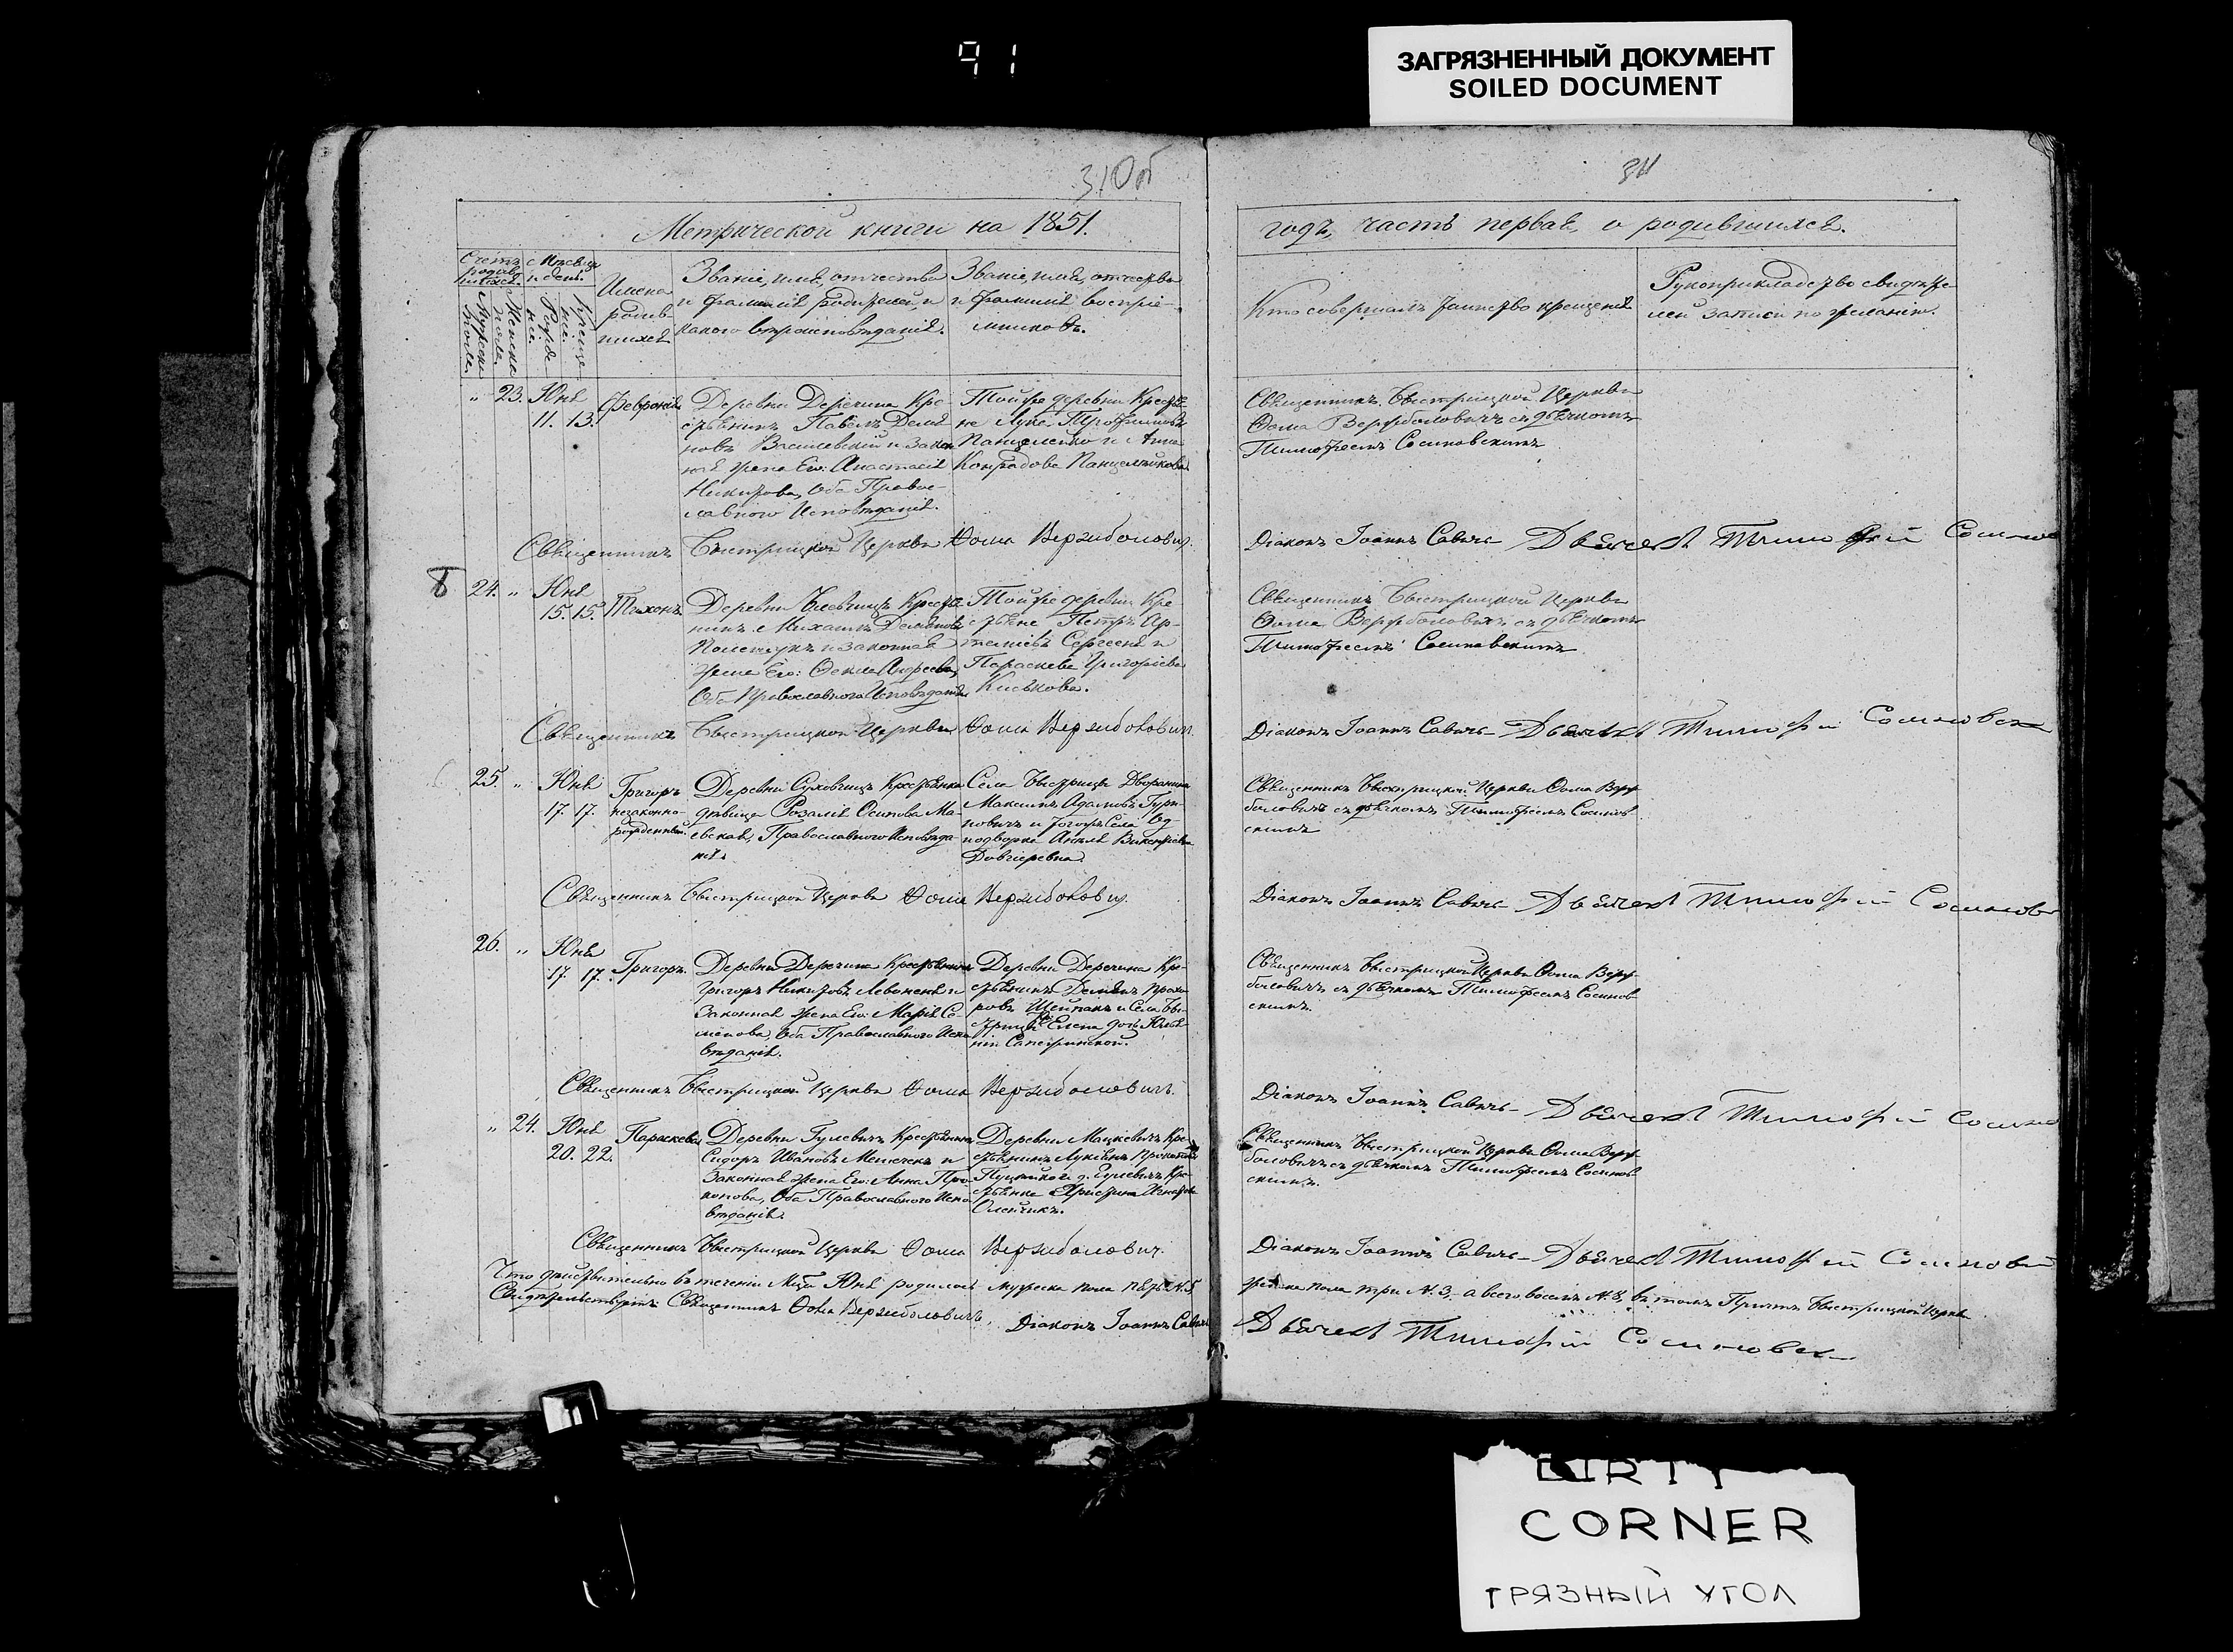 91
ЗАГРЯЗНЕННЫЙ ДОКУМЕНТ
SOILED DOCUMENT
310об
311
Метрической книги на 1851.
годъ, часть первая, о родившихся.
Счетъ родив-
шихся.
Мужеска
пола.
Женска
пола.
Мѣсяцъ
и день.
Рожде-
нія.
Креще-
нія.
Имена
родив-
шихся
Званіе, имя, отчество
и фамилія родителей, и
какого вѣроисповѣданія.
Званіе, имя, отчество
и фамилія воспріе-
мниковъ.
Кто совершалъ таинство крещенія
Рукоприкладство свидѣте-
лей записи по желанію.
„ 23. Юня
11. 13.
Февронія
Деревни Деречина Кре-
стьянинъ Павелъ Демья-
новъ Василевскій и закон-
ная жена Его: Анастасія
Никитова, Оба Право-
славного Исповѣданія.
Той же деревни Крестья-
не Лука Трофимовъ
и Анна
Кондратова
Священникъ Быстрицкой Церкви
Ѳома Вержболовичъ съ дьячкомъ
Тимофеемъ Сосиновскимъ
Священникъ Быстрицкой Церкви Ѳома Вержболович
Діаконъ Іоаннъ Савичъ Дьячекъ Тимофей
24. „ Юня
15. 15.
Тихонъ
Деревни Крестья-
нинъ Михаилъ Демьяновъ
Полещукъ и законная
жена Его: Ѳекла Андреева,
Оба Православного Исповѣданія
Той же деревни Кре-
стьяне Петръ Ар-
темьевъ Сергеевъ и
Параскева Григоріева
Священникъ Быстрицкой Церкви
Ѳома Вержболовичъ съ дьячкомъ
Тимофеемъ Сосиновскимъ
Священникъ Быстрицкой Церкви Ѳома Вержболович
Діаконъ Іоаннъ Савичъ Дьячекъ Тимофей
25. „ Юня
17. 17.
Григоръ
незаконно-
рожденный.
Деревни Суховчицъ Крестьянка
дѣвица Розалія Осипова Ма-
евская, Православного Исповѣда-
нія.
Села Быстрицы Дворянинъ
Максимъ Адамовъ Гури-
новичъ и тогожъ Села Од-
нодворка
Священникъ Быстрицкой Церкви Ѳома Верж-
боловичъ съ дьячкомъ Тимофеемъ Сосинов-
скимъ
Священникъ Быстрицкой Церкви Ѳома Вержболович
Діаконъ Іоаннъ Савичъ Дьячекъ Тимофей
26. „ Юня
17. 17.
Григоръ.
Деревни Деречина Крестьянинъ
Григоръ Никитовъ и
Законная жена Его: Марія Се-
менова, Оба Православного Испо-
вѣданія.
Деревни Деречина Кре-
стьянинъ Демьянъ Прохо-
ровъ и Села Бы-
стрицы Елена дочь
Священникъ Быстрицкой Церкви Ѳома Верж-
боловичъ съ дьячкомъ Тимофеемъ Сосинов-
скимъ.
Священникъ Быстрицкой Церкви Ѳома Вержболовичъ.
Діаконъ Іоаннъ Савичъ Дьячекъ Тимофей
„ 24. Юня
20. 22.
Параскева
Деревни Гулевичъ Крестьянинъ
Сидоръ Ивановъ и
Законная жена Его: Анна Про-
копова, Оба Православного Испо-
вѣданія.
Деревни Мацкевичъ Кре-
стьянинъ Лукьянъ
и д. Гулевичъ Кре-
стьянка Христина Игнатова
Олейчикъ.
Священникъ Быстрицкой Церкви Ѳома Верж-
боловичъ съ дьячкомъ Тимофеемъ Сосинов-
скимъ.
Священникъ Быстрицкой Церкви Ѳома Вержболович.
Діаконъ Іоаннъ Савичъ Дьячекъ Тимофей
Что дѣйствительно въ теченіи Юня родилось мужеска пола пять N. 5,
женска пола три N. 3, а всего восемь N. 8, въ томъ Причтъ Быстрицкой Церкви
Свидѣтельствуетъ Священникъ Ѳома Вержболовичъ,
Діаконъ Іоаннъ Савичъ
Дьячекъ Тимофей
DIRTY
CORNER
ГРЯЗНЫЙ УГОЛ